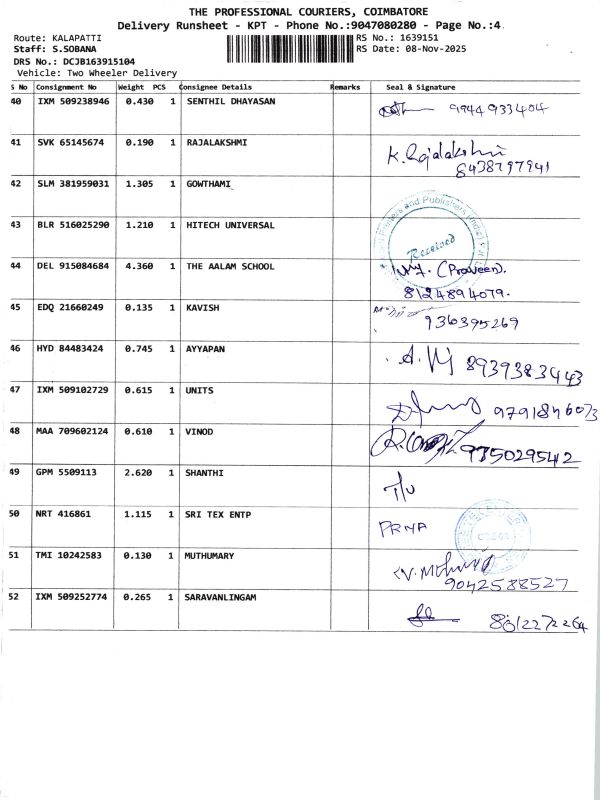 THE PROFESSIONAL COURIERS, COIMBATORE
Delivery Runsheet - KPT - Phone No.:9047080280 - Page No.:4
Route: KALAPATTI RS No.: 1639151
Staff: S.SOBANA RS Date: 08-Nov-2025
DRS No.: DCJB163915104
Vehicle: Two Wheeler Delivery
S No Consignment No Weight PCS Consignee Details Remarks Seal & Signature
40 IXM 509238946 0.430 1 SENTHIL DHAYASAN 9944933404
41 SVK 65145674 0.190 1 RAJALAKSHMI K.Rajalakshmi
8438797941
42 SLM 381959031 1.305 1 GOWTHAMI
43 BLR 516025290 1.210 1 HITECH UNIVERSAL Received
44 DEL 915084684 4.360 1 THE AALAM SCHOOL (Praveen).
8124894079.
45 EDQ 21660249 0.135 1 KAVISH
936395269
46 HYD 84483424 0.745 1 AYYAPAN 8939383443
47 IXM 509102729 0.615 1 UNITS
48 MAA 709602124 0.610 1 VINOD 9350295412
49 GPM 5509113 2.620 1 SHANTHI
50 NRT 416861 1.115 1 SRI TEX ENTP PRIYA
51 TMI 10242583 0.130 1 MUTHUMARY
9042588527
52 IXM 509252774 0.265 1 SARAVANLINGAM